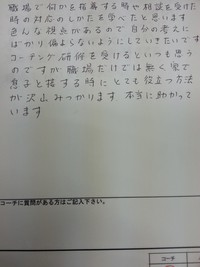 職場で何かを指導する時や相談を受けた
時の対応のしかたを学べたと思います
色んな視点があるので自分の考えに
ばかり偏よらないようにしていきたいです
コーチング研修を受けるといつも思う
のですが職場だけでは無く家で
息子と接する時にとても役立つ方法
が沢山みつかります 本当に助かって
います
コーチに質問がある方はご記入下さい。
コーチ